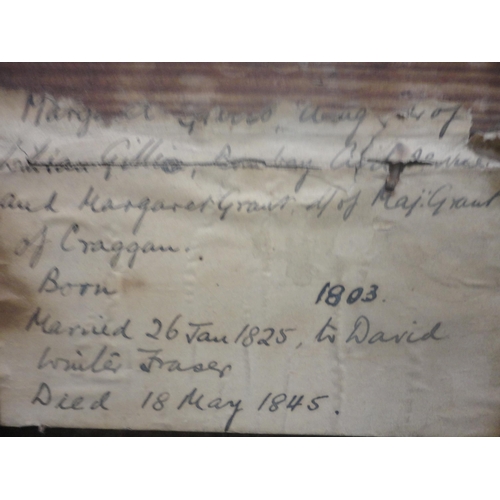 Margaret
Gillies, Bombay
and Margaret Grant. d of Maj. Grant
of Craggan.
Born 1803.
Married 26 Jan 1825, to David
Winter Fraser
Died 18 May 1845.